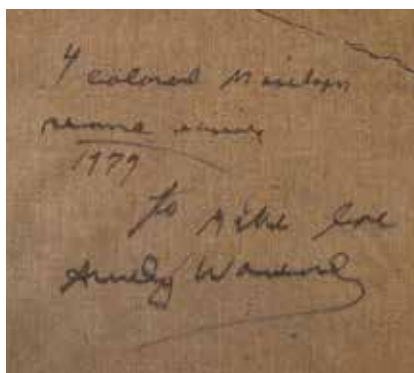 4 colored Marilyn
series
1979
To Mike love
Andy Warhol